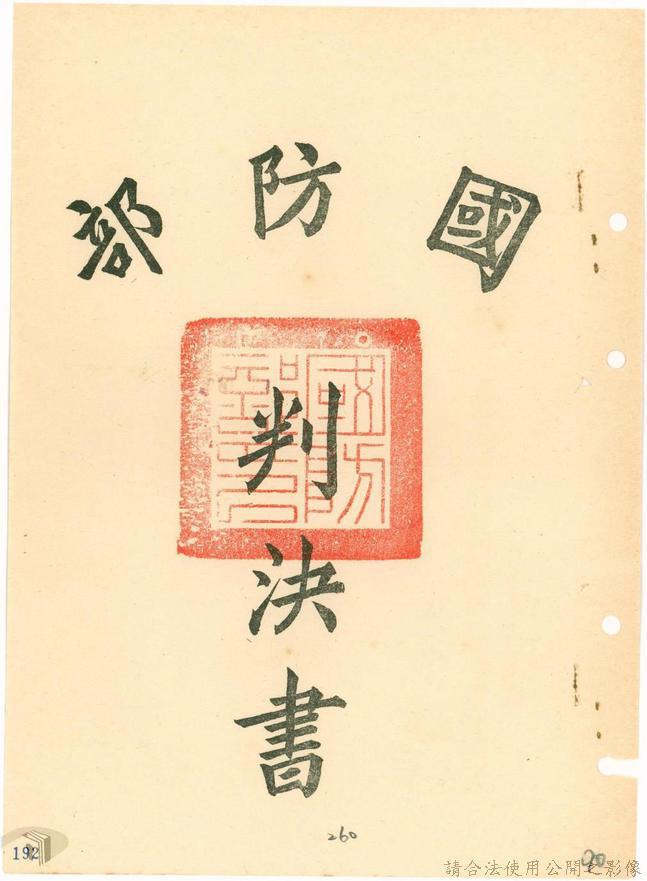 國防部
判決書
260
192
20
請合法使用公開之影像